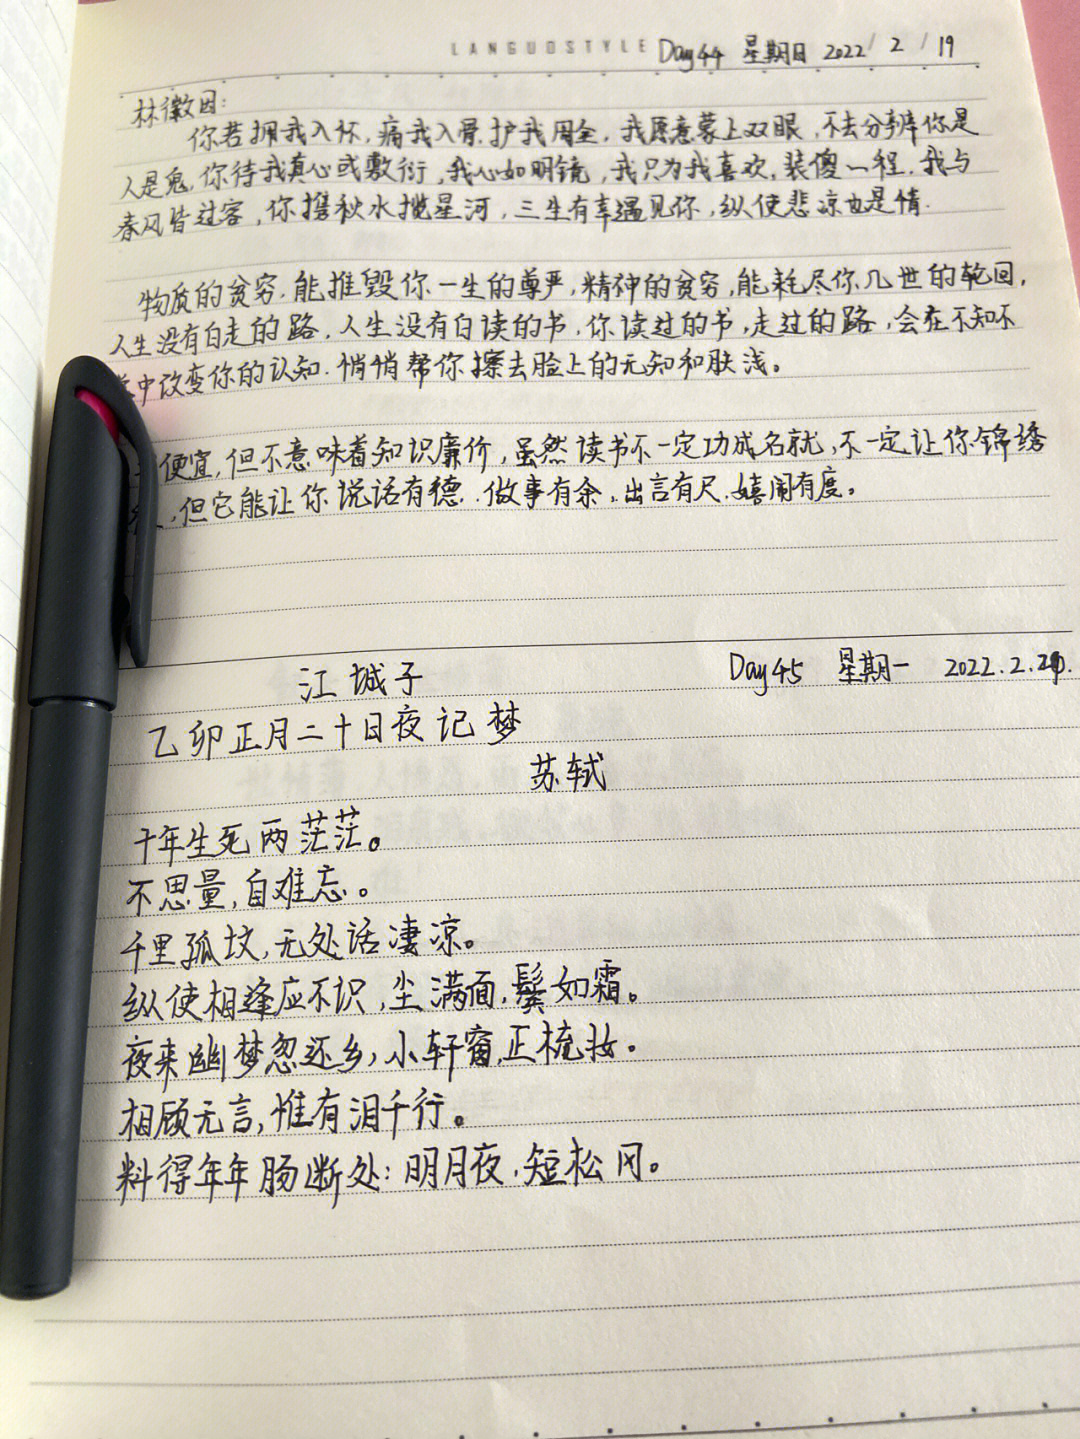 LANGUOSTYLE Day44 星期日 2022/2/19
林徽因:
你若拥我入怀,痛我入骨,护我周全,我愿意蒙上双眼,不去分辨你是
人是鬼,你待我真心或敷衍,我心如明镜,我只为我喜欢,装傻一程,我与
春风皆过客,你携秋水揽星河,三生有幸遇见你,纵使悲凉也是情.
物质的贫穷,能摧毁你一生的尊严,精神的贫穷,能耗尽你几世的轮回,
人生没有白走的路,人生没有白读的书,你读过的书,走过的路,会在不知不
中改变你的认知.悄悄帮你擦去脸上的无知和肤浅。
便宜,但不意味着知识廉价,虽然读书不一定功成名就,不一定让你锦绣
,但它能让你说话有德.做事有余.出言有尺.嬉闹有度。
江城子 Day45 星期一 2022.2.20.
乙卯正月二十日夜记梦
苏轼
十年生死两茫茫。
不思量,自难忘。
千里孤坟,无处话凄凉。
纵使相逢应不识,尘满面,鬓如霜。
夜来幽梦忽还乡,小轩窗,正梳妆。
相顾无言,惟有泪千行。
料得年年肠断处:明月夜,短松冈。